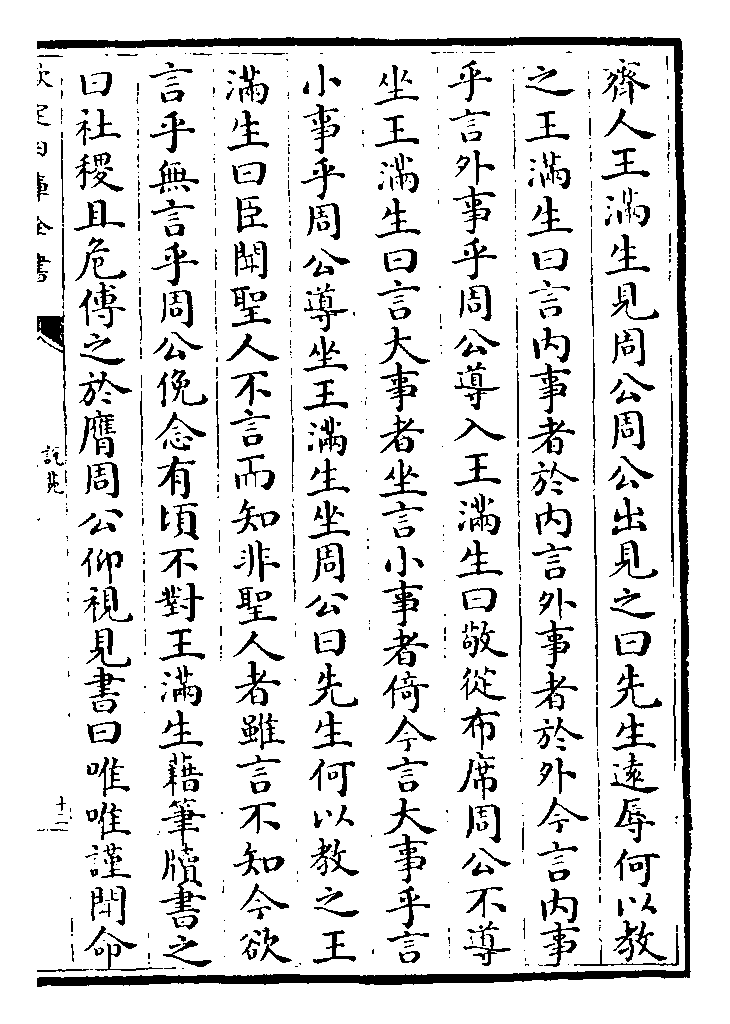 齊人王滿生見周公周公出見之曰先生逺辱何以教
之王滿生曰言内事者於内言外事者於外今言内事
乎言外事乎周公導入王滿生曰敬從布席周公不導
坐王滿生曰言大事者坐言小事者倚今言大事乎言
小事乎周公導坐王滿生坐周公曰先生何以教之王
滿生曰臣聞聖人不言而知非聖人者雖言不知今欲
言乎無言乎周公俛念有頃不對王滿生藉筆牘書之
曰社稷且危傅之於膺周公仰視見書曰唯唯謹聞命
欽定四庫全書
說苑
十二